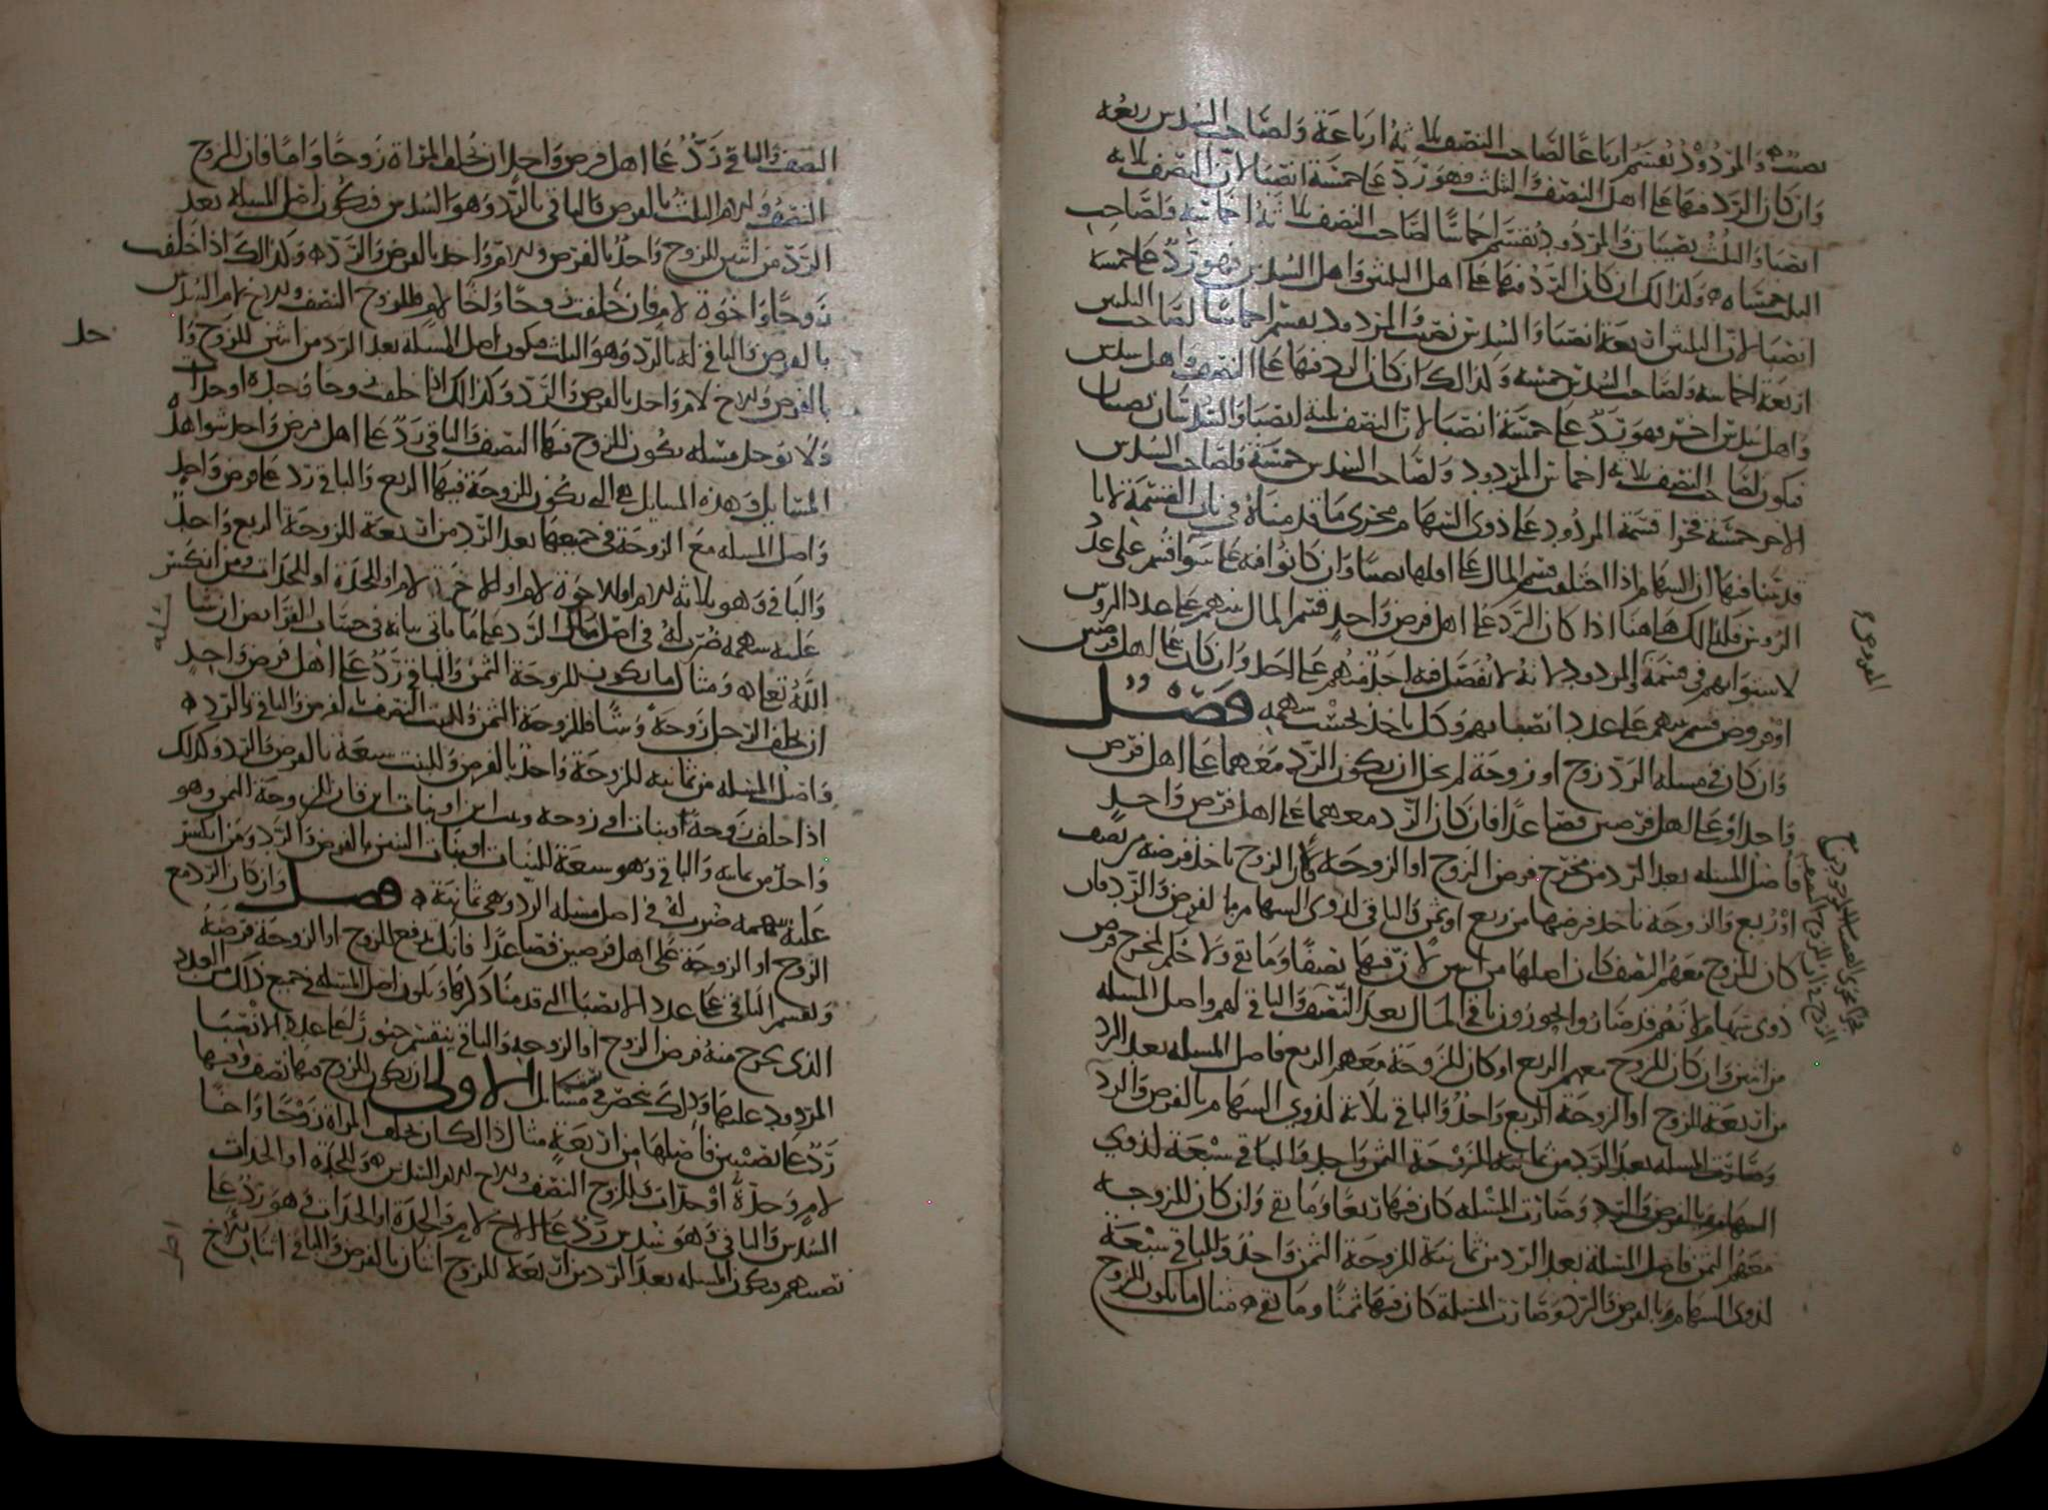 نصيب والمردود يقسم ارباعا لصاحب النصف ثلاثة ارباعه ولصاحب السدس ربعه
وان كان الرد فيها على اهل النصف والثلث فهو رد على خمسة انصبا لان النصف ثلاثة
انصبا والثلث نصيبان والمردود يقسم اخماسا لصاحب النصف ثلاثة اخماسه ولصاحب
الثلث خمساه وكذلك ان كان الرد فيها على اهل الثلثين واهل السدس فهو رد على خمسة
انصبا لان الثلثين اربعة انصبا والسدس نصيب والمردود يقسم اخماسا لصاحب الثلثين
اربعة اخماسه ولصاحب السدس خمسه وكذلك ان كان الرد فيها على النصف واهل سدس
واهل سدس اخر فهو رد على خمسة انصبا لان النصف ثلثة انصبا والسدسان نصيبان
فيكون لصاحب النصف ثلاثة اخماس المردود ولصاحب السدس خمسة ولصاحب السدس
الاخر خمسة فجرا قسمة المردود على ذوي السهام مجرى ما قدمناه في باب القسمة لانا
قد بينا فيها ان السهام اذا اختلفت قسم المال على اقلها نصيبا وان كانوا فيه على سوا قسم على عدد
الروس فلذلك هاهنا اذا كان الرد على اهل فرض واحد قسم المال بينهم على عدد الروس
لاستوايهم في قسمة المردود لانه لا يفضل فيه احد منهم على احد وان كان على اهل فرضين
او فروض قسم بينهم على عدد انصبايهم وكل ياخذ بحسب سهمه فصل
وان كان في مسلة الرد زوج او زوجة لم يخل ان يكون الرد معهما على اهل فرض
واحد او على اهل فرضين فصاعدا فان كان الرد معهما على اهل فرض واحد
فاصل المسله بعد الرد من مخرج فرض الزوج او الزوجة كان الزوج ياخذ فرضه من نصف
او ربع والزوجة تاخذ فرضها من ربع او ثمن والباقي لذوي السهام بالفرض والرد فان
كان للزوج معهم النصف كان اصلها من اثنين لان فيها نصفا وما بقي ولا حكم لمخرج فرض
ذوي سهام لانهم قد صاروا يحوزون باقي المال بعد النصف والباقي لهم واصل المسله
من اثنين وان كان للزوج معهم الربع او كان للزوجة معهم الربع فاصل المسله بعد الرد
من اربعة للزوج او الزوجة الربع واحد والباقي ثلاثة لذوي السهام بالفرض والرد
وصارت المسله بعد الرد من ثمانية للزوجة الثمن واحد والباقي سبعة لذوي
السهام بالفرض والرد وصارت المسله كان فيها ربعا وما بقي وان كان للزوجة
معهم الثمن فاصل المسلة بعد الرد من ثمانية للزوجة الثمن واحد والباقي سبعة
لذوي السهام بالفرض والرد وصارت المسلة كان فيها ثمنا وما بقي مثال ما يكون للزوج
النصف والباقي رد على اهل فرض واحد ان تخلف المراة زوجا واما فان للزوج
النصف وللام الثلث بالفرض والباقي بالرد وهو السدس فيكون اصل المسله بعد
الرد من اثنين للزوج واحد بالفرض وللام واحد بالفرض والرد وكذلك اذا خلفت
زوجا واخوة لام فان خلفت زوجا واخا لام فللزوج النصف وللاخ للام السدس
بالفرض والباقي له بالرد وهو الثلث فيكون اصل المسله بعد الرد من اثنين للزوج وا
حد
بالفرض وللاخ لام واحد بالفرض والرد وكذلك اذا خلفت زوجا وجدة او جدات
ولا يوجد مسله يكون للزوج فيها النصف والباقي رد على اهل فرض واحد سوا هذه
المسايل وهذه المسايل هي التي يكون للزوجة فيها الربع والباقي رد على فرض واحد
واصل المسله مع الزوجة في جميعها بعد الرد من اربعة للزوجة الربع واحد
والباقي وهو ثلاثة للام او للاخوة لام او للاخوة لام او الجدة او الجدات ومن انكسر
عليه سهمه ضرب له في اصل الرد على ما ياتي بيانه في حساب الفرايض ان شا
الله تعالى ومثال ما يكون للزوجة الثمن والباقي رد على اهل فرض واحد
ان يخلف الرجل زوجة وبنتا فللزوجة الثمن وللبنت النصف بالفرض والباقي بالرد
واصل المسله من ثمانية للزوجة واحد بالفرض وللبنت سبعة بالفرض والرد وكذلك
اذا خلف زوجة وبنات او زوجة وبنت ابن او بنات ابن فان للزوجة الثمن وهو
واحد من ثمانية والباقي وهو سبعة للبنات او بنات البنين بالفرض والرد ومن انكسر
عليه سهمه ضرب له في اصل مسله الرد وهي ثمانية فصل وان كان الرد مع
الزوج او الزوجة على اهل فرضين فصاعدا فانك تدفع للزوج او الزوجة فرضه
وتقسم الباقي على عدد الانصبا التي قدمنا ذكرها ويكون اصل المسله في جميع ذلك من العدد
الذي يخرج منه فرض الزوج او الزوجة والباقي ينقسم على عدد الانصبا
المردود عليها وذلك ينحصر في مسايل الاولى ان يكون للزوج فيها نصف وفيها
رد على نصيبين فاصلها من اربعة مثال ذلك ان تخلف المراة زوجا واخا
لام وجدة او جدات للزوج النصف وللاخ للام السدس وللجدة او الجدات
السدس والباقي وهو سدس رد على الاخ لام والجدة او الجدات فهو رد على
نصيبهم فيكون المسله بعد الرد من اربعة للزوج اثنان بالفرض والباقي اثنان للاخ